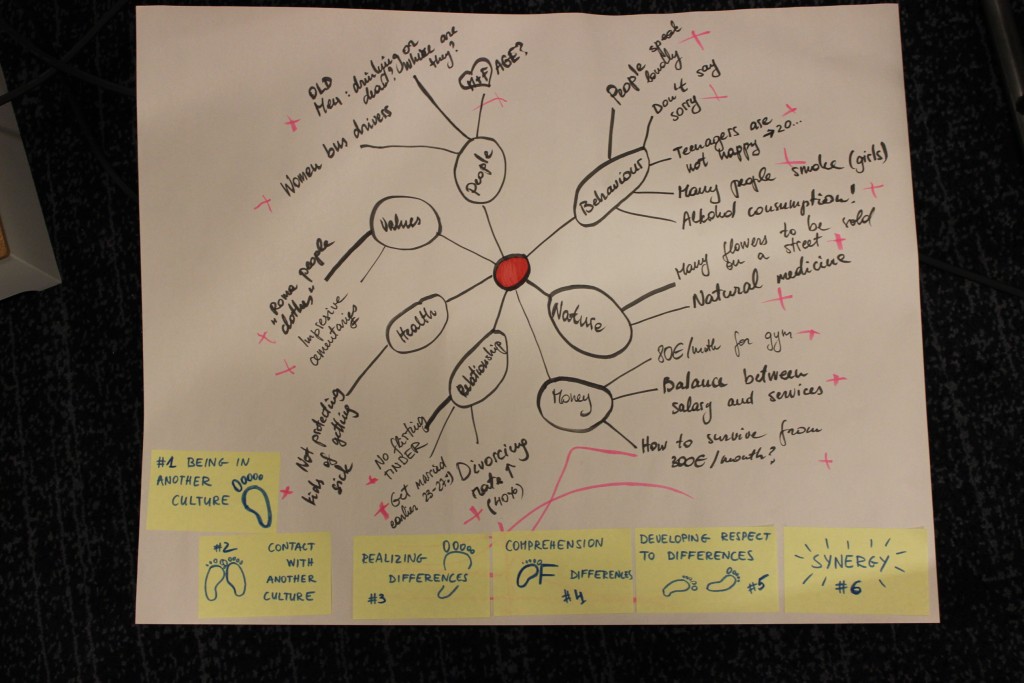 People
OLD
Men: drinking or
dead? Where are
they?
AGE?
Women bus drivers
Behaviour
People speak
loudly
Don't say
sorry
Teenagers are
not happy → 20...
Many people smoke (girls)
Alkohol consumption!
Values
"Roma people
clothes"
Impressive
cementaries
Nature
Many flowers to be sold
on a street
Natural medicine
Health
Not protecting
kids of getting
sick
Relationship
No flirting
TINDER
Get married
earlier 23-27:)
Divorcing
rate ↑
(40%)
Money
80€/month for gym
Balance between
salary and services
How to survive from
300€/month?
#1 BEING IN
ANOTHER
CULTURE
#2 CONTACT
WITH
ANOTHER
CULTURE
REALIZING
DIFFERENCES
#3
COMPREHENSION
OF DIFFERENCES
#4
DEVELOPING RESPECT
TO DIFFERENCES
#5
SYNERGY
#6